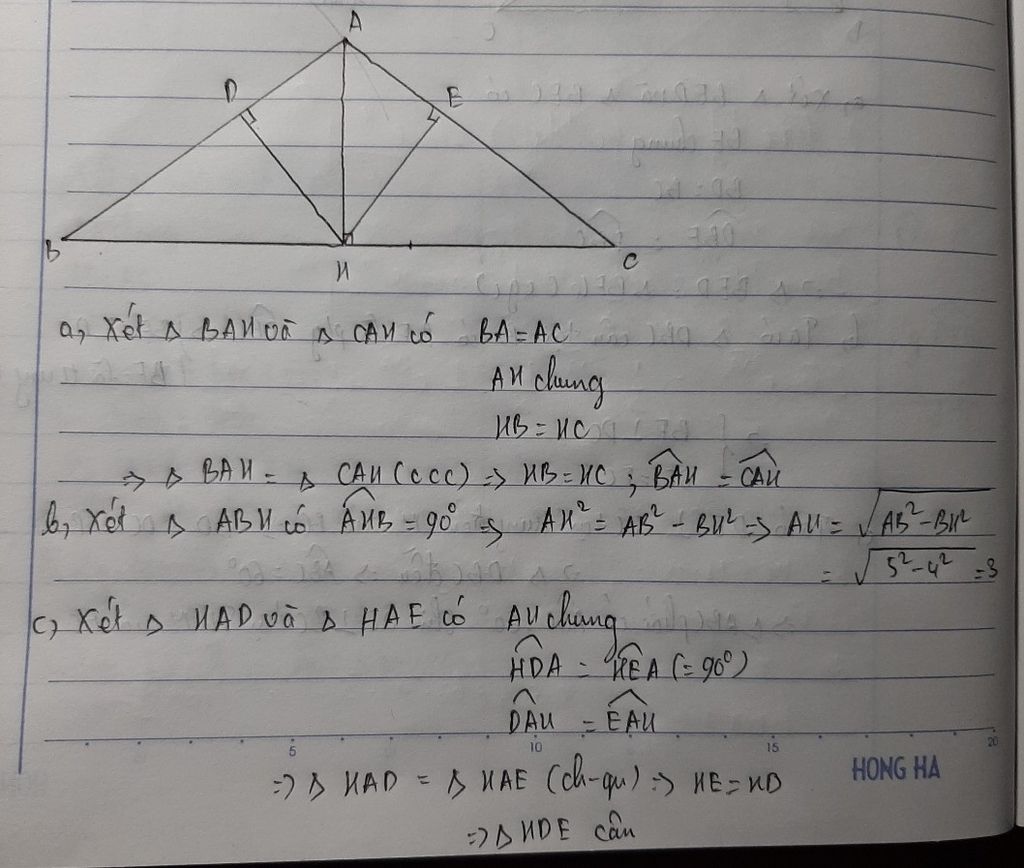 A
D
E
B
H
C
a, Xét Δ BAH và Δ CAH có BA = AC
AH chung
HB = HC
=> Δ BAH = Δ CAH (ccc) => HB = HC ; \widehat{BAH} = \widehat{CAH}
b, Xét Δ ABH có \widehat{AHB} = 90° => AH² = AB² - BH² => AH = √(AB² - BH²)
= √(5² - 4²) = 3
c, Xét Δ HAD và Δ HAE có AH chung
\widehat{HDA} = \widehat{HEA} (= 90°)
\widehat{DAH} = \widehat{EAH}
5 10 15 20
HONG HA
=> Δ HAD = Δ HAE (ch-gn) => HE = HD
=> Δ HDE cân